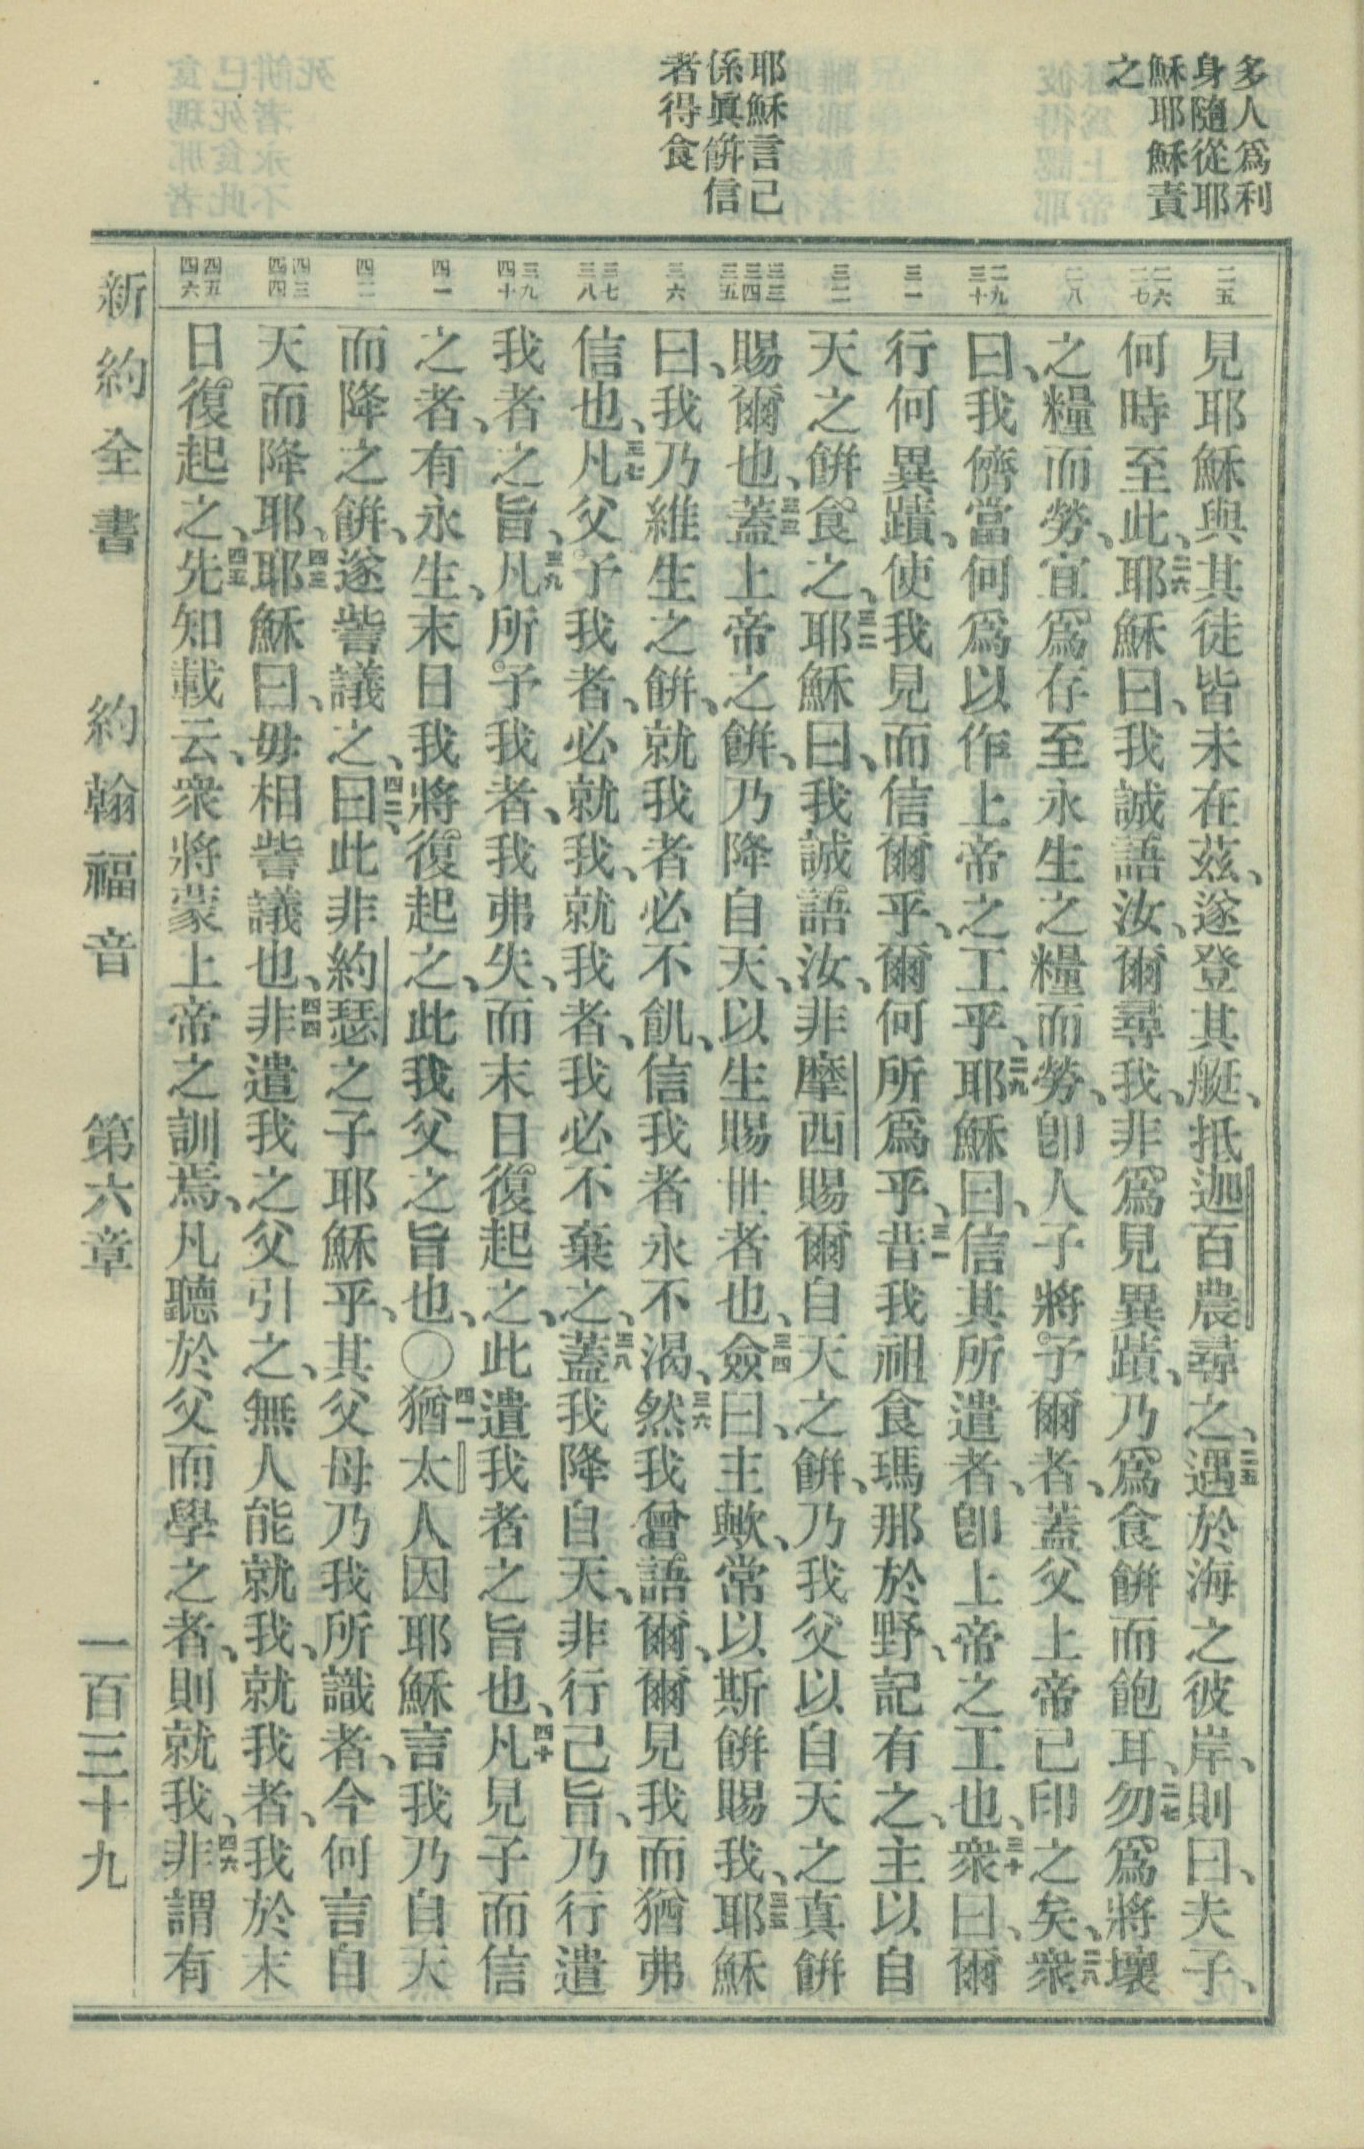 多人爲利
身隨從耶
穌耶穌責
之
耶穌言己
係眞餠信
者得食
二五
二六
二七
二八
二九
三十
三一
三二
三三
三四
三五
三六
三七
三八
三九
四十
四一
四二
四三
四四
四五
四六
見耶穌與其徒皆未在茲、遂登其艇、抵迦百農尋之、二五遇於海之彼岸、則曰、夫子、
何時至此、二六耶穌曰、我誠語汝、爾尋我、非爲見異蹟、乃爲食餠而飽耳、二七勿爲將壞
之糧而勞、宜爲存至永生之糧而勞、卽人子將予爾者、蓋父上帝已印之矣、二八衆
曰、我儕當何爲以作上帝之工乎、二九耶穌曰、信其所遣者、卽上帝之工也、三十衆曰、爾
行何異蹟、使我見而信爾乎、爾何所爲乎、三一昔我祖食瑪那於野、記有之、主以自
天之餠食之、三二耶穌曰、我誠語汝、非摩西賜爾自天之餠、乃我父以自天之真餠
賜爾也、三三蓋上帝之餠、乃降自天、以生賜世者也、三四僉曰、主歟、常以斯餠賜我、三五耶穌
曰、我乃維生之餠、就我者必不飢、信我者永不渴、三六然我曾語爾、爾見我而猶弗
信也、三七凡父予我者、必就我、就我者、我必不棄之、三八蓋我降自天、非行己旨、乃行遣
我者之旨、三九凡所予我者、我弗失、而末日復起之、此遣我者之旨也、四十凡見子而信
之者、有永生、末日我將復起之、此我父之旨也、〇四一猶太人因耶穌言我乃自天
而降之餠、遂訾議之、四二曰、此非約瑟之子耶穌乎、其父母乃我所識者、今何言自
天而降耶、四三耶穌曰、毋相訾議也、四四非遣我之父引之、無人能就我、就我者、我於末
日復起之、四五先知載云、衆將蒙上帝之訓焉、凡聽於父而學之者、則就我、四六非謂有
新約全書 約翰福音 第六章 一百三十九